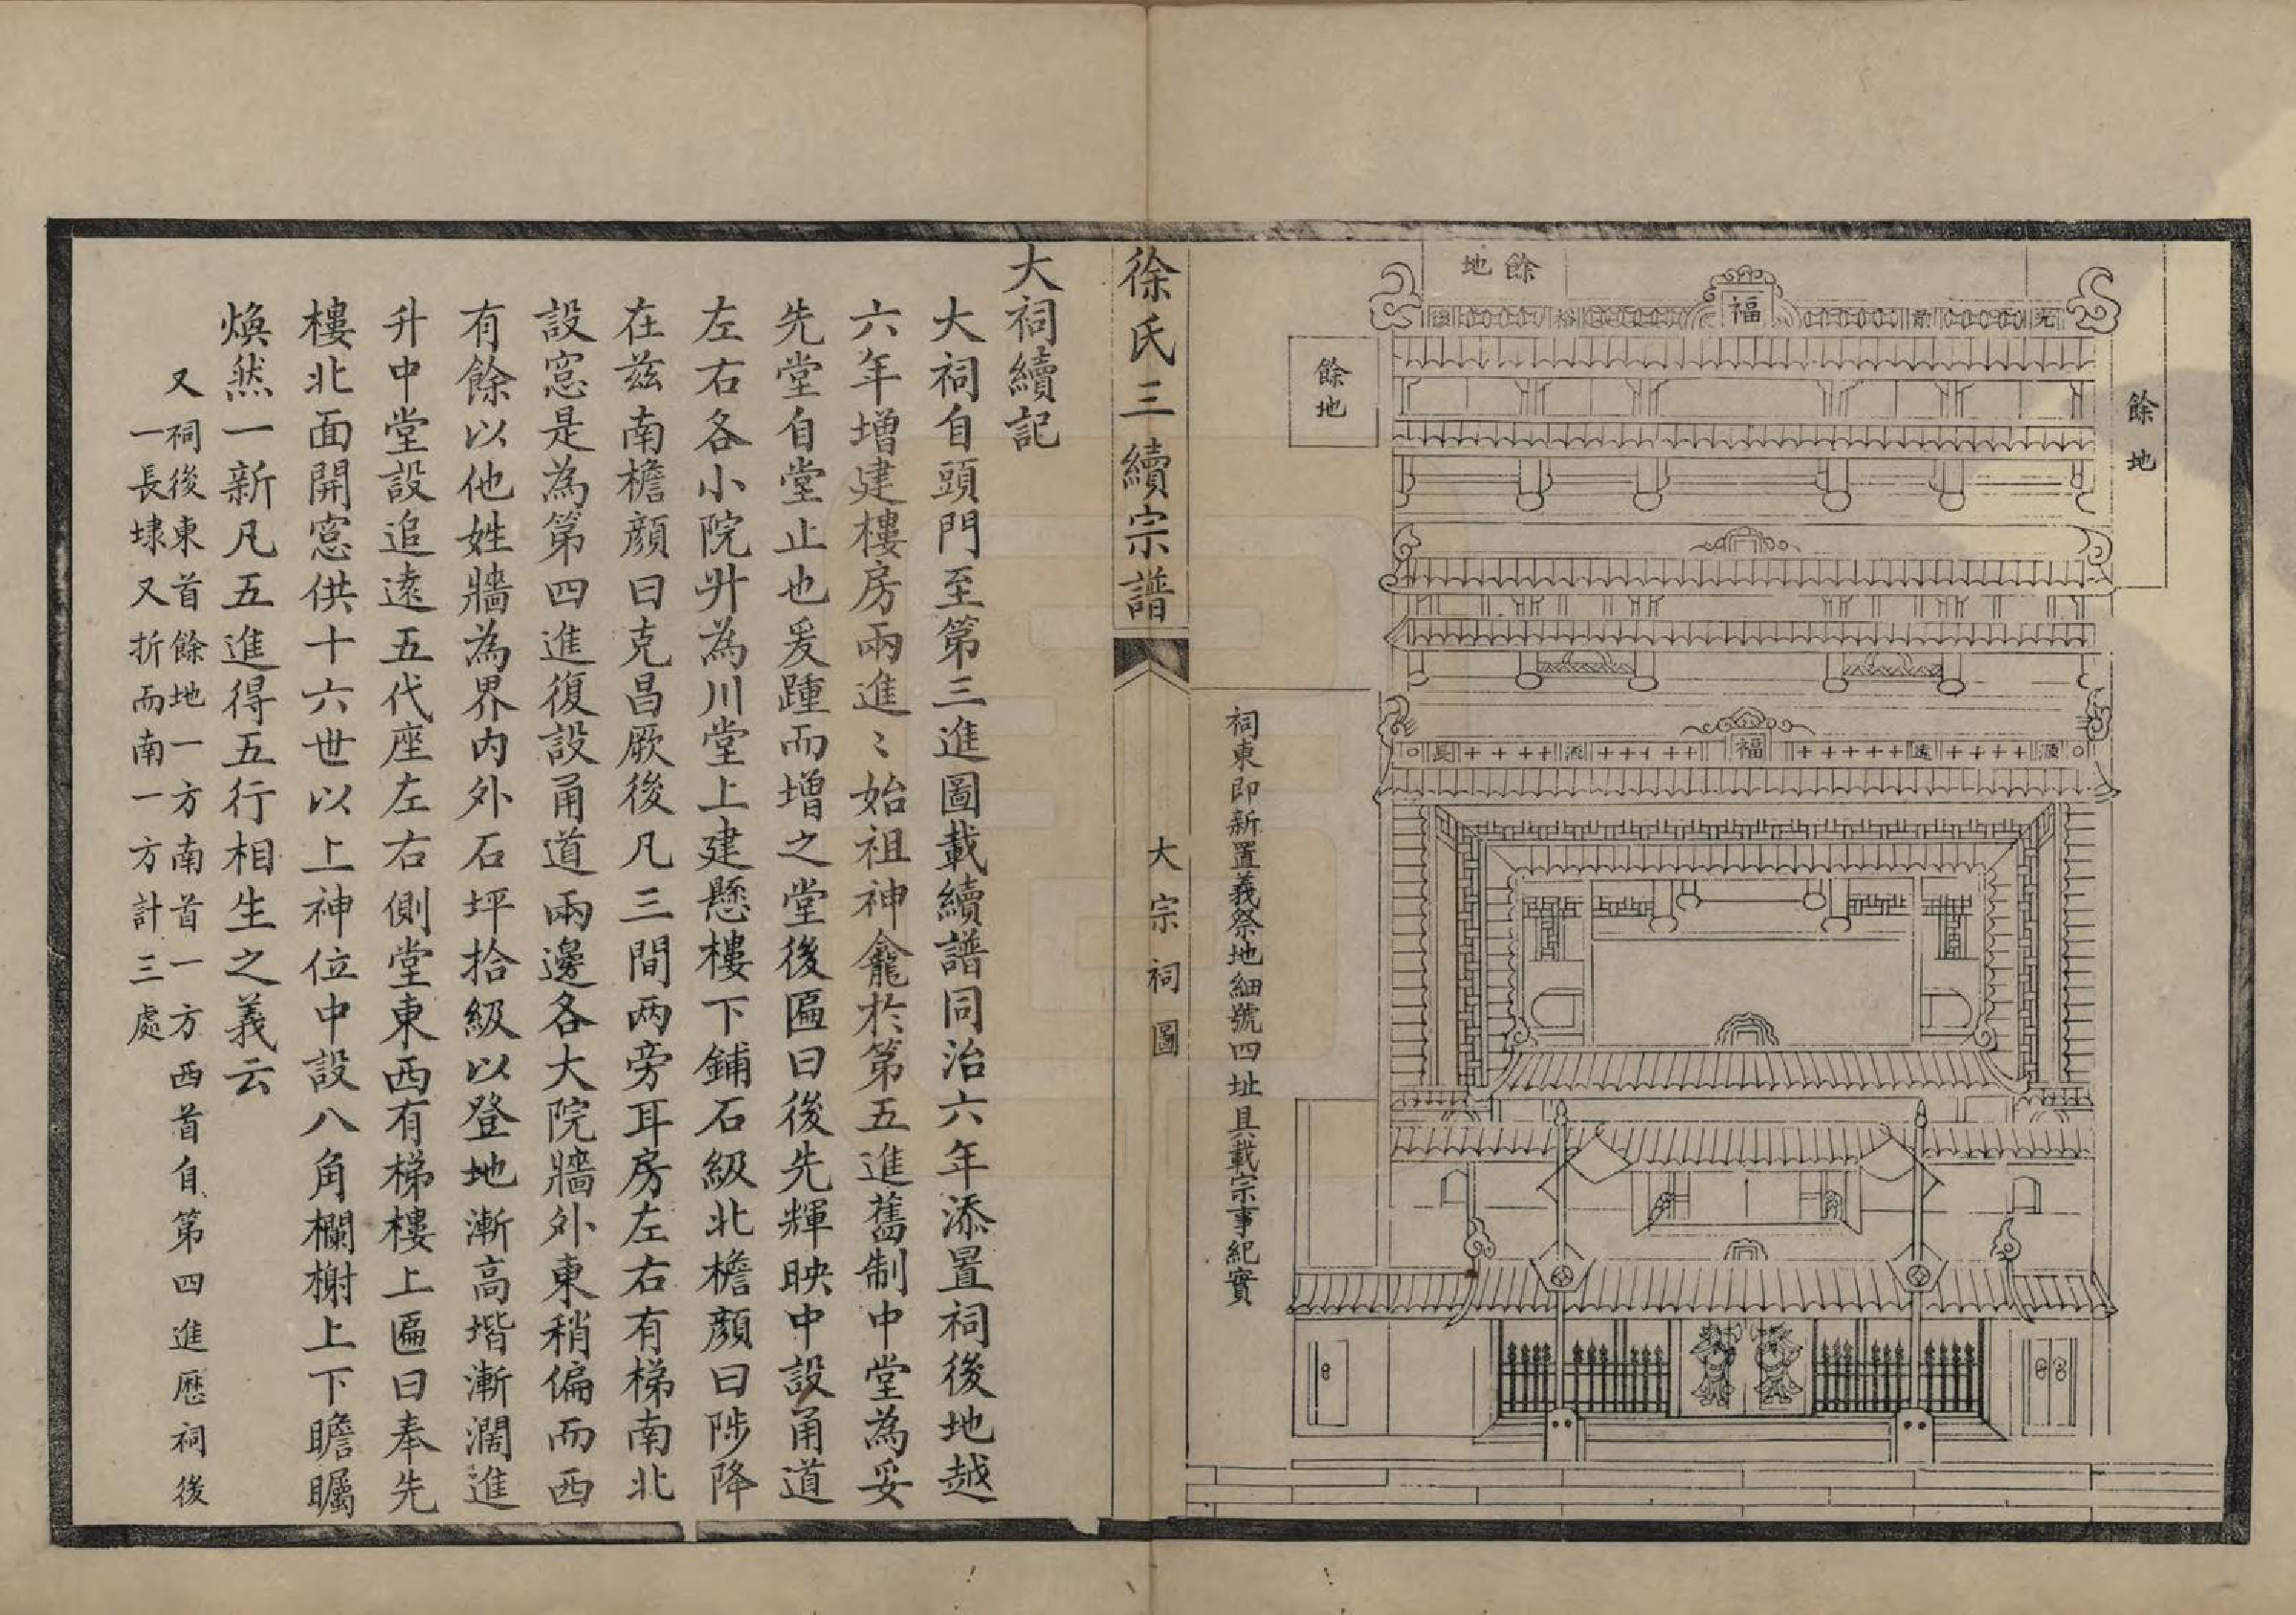 餘地
餘地
餘地
光前 福 裕後
源遠 福 流長
祠東即新置義祭地細號四址具載宗事紀實
徐氏三續宗譜
大宗祠圖
大祠續記
大祠自頭門至第三進圖載續譜同治六年添置祠後地越
六年增建樓房兩進〻始祖神龕於第五進舊制中堂為妥
先堂自堂止也爰踵而增之堂後匾曰後先輝映中設甬道
左右各小院升為川堂上建懸樓下鋪石級北檐顔曰陟降
在兹南檐顔曰克昌厥後凡三間两旁耳房左右有梯南北
設窓是為第四進復設甬道兩邊各大院牆外東稍偏而西
有餘以他姓牆為界内外石坪拾級以登地漸高堦漸濶進
升中堂設追逺五代座左右側堂東西有梯樓上匾曰奉先
樓北面開窓供十六世以上神位中設八角欄榭上下瞻矚
煥然一新凡五進得五行相生之義云
又祠後東首餘地一方南首一方西首自第四進歷祠後
一長埭又折而南一方計三處